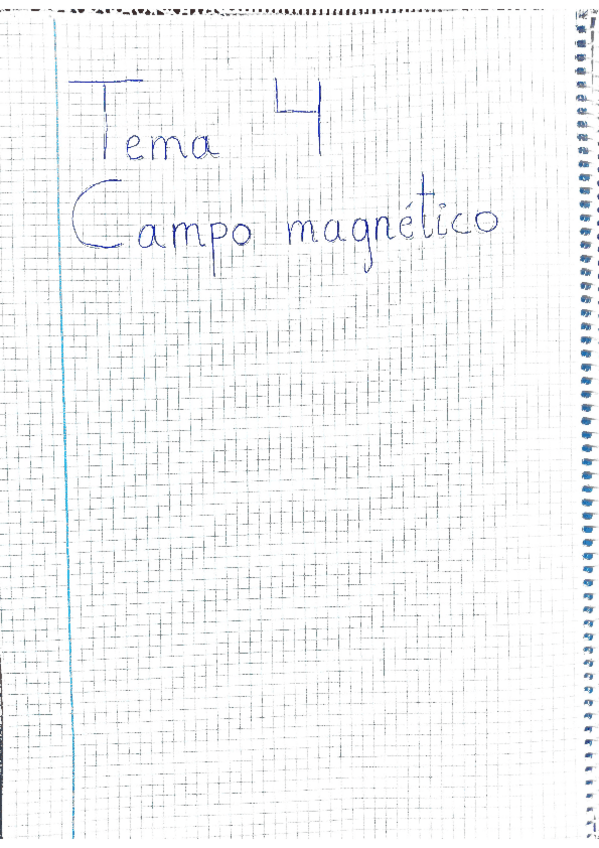 Tema 4
Campo magnético